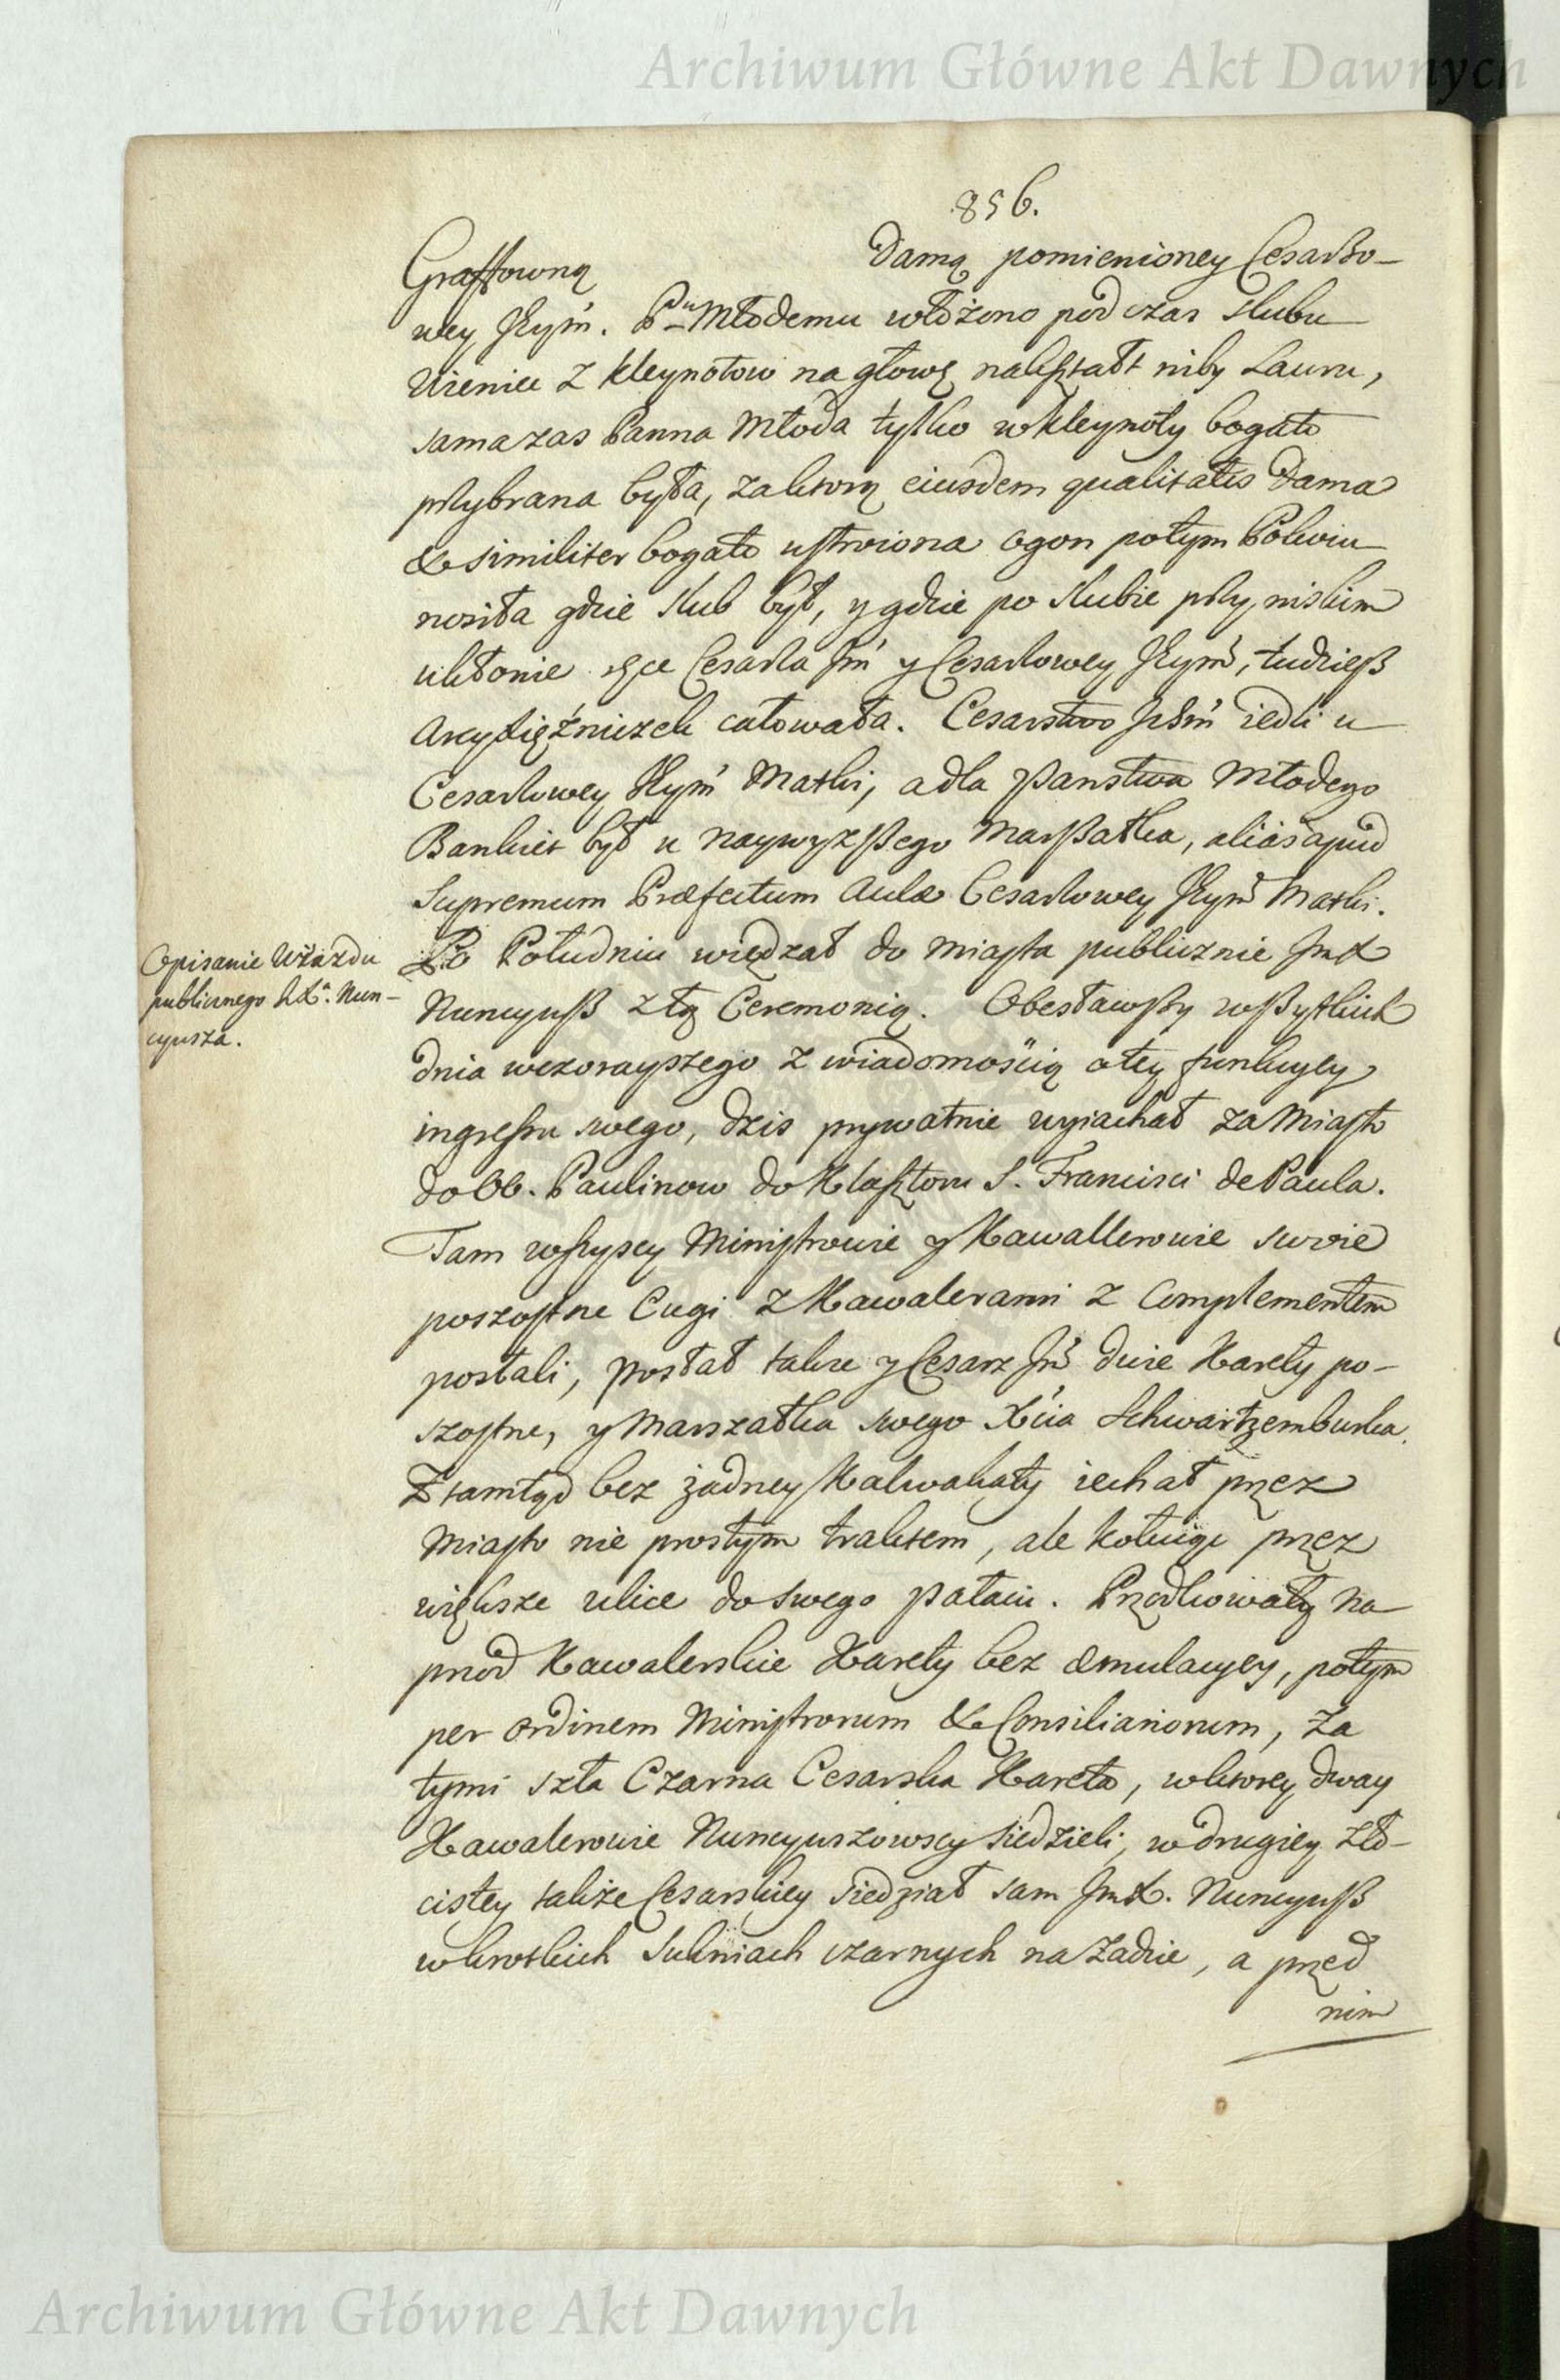 Archiwum Główne Akt Dawnych
856.
Graffowną Damą pomienioney Cesarzo-
wey Jeym̃. Pnu Młodemu włożono podczas slubu
Wieniec z kleynotow na głowę nakształt niby Lauru,
sama zas Panna Młoda tylko w kleynoty bogato
przybrana była, za ktorą eiusdem qualitatis Dama
& similiter bogato ustroiona ogon potym Pokoiu
nosiła gdzie slub był, y gdzie po slubie przy niskim
ukłonie ręce Cesarza Jm̃ y Cesarzowey Jeym̃, tudzieß
Arcyxiężniczek całowała. Cesarstwo Ichm̃ iedli u
Cesarzowey Jeym̃ Matki, a dla Panstwa Młodego
Bankiet był u naywyzßego Marßałka, alias apud
Supremum Præfectum Aulæ Cesarzowey Jeym̃ Matki.
Opisanie Wiazdu
publicznego JXa. Nun-
cyusza.
Po Południu więdzał do miasta publicznie JmX
Nuncyuß z tą Ceremonią. Obesławszy wßytkich
dnia wczorayszego z wiadomością o tey funkcyey
ingressu swego, dzis prywatnie wyiachał za Miasto
do OO. Paulinow do Klasztoru S. Francisci de Paula.
Tam wszyscy Ministrowie y Kawallerowie swoie
poszostne Cugi z Kawalerami z Complementem
posłali, posłał takze y Cesarz Jm̃ dwie Karety po-
szostne, y Marszałka swego Xcia Schwartzemburka.
Ztamtąd bez żadney Kalwakaty iechał przez
Miasto nie prostym traktem, ale kołuiąc przez
większe ulice do swego pałacu. Przodkowały na
przod Kawalerskie Karety bez æmulacyey, potym
per ordinem Ministrorum & Consiliariorum, za
tymi szła Czarna Cesarska Kareta, w ktorey dway
Kawalerowie Nuncyuszowscy siedzieli, w drugiey zło-
cistey takze Cesarskiey siedział sam JmX. Nuncyuß
w krotkich sukniach czarnych na zadzie, a przed
nim
Archiwum Główne Akt Dawnych